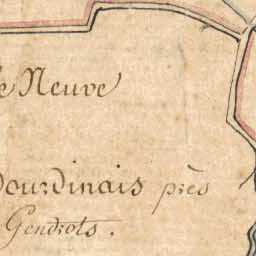 e Neuve
Dourdinais près
Gendrots.